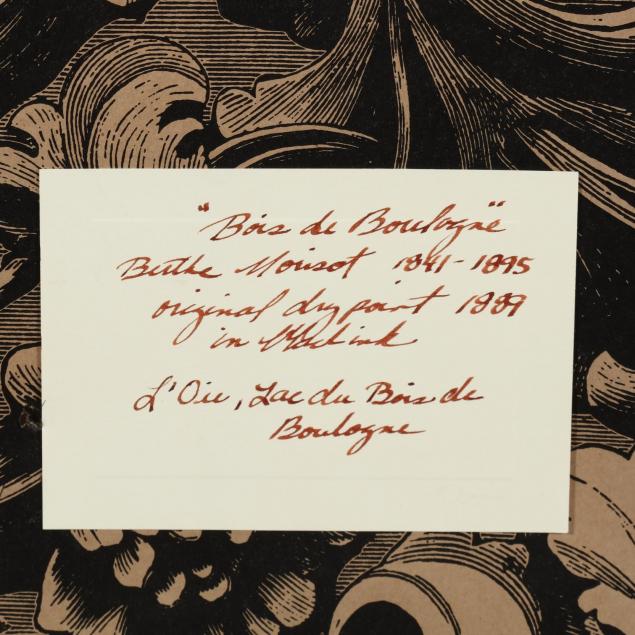 "Bois de Boulogne"
Berthe Morisot 1841-1895
original drypoint 1889
in black ink
L'Oie, Lac du Bois de
Boulogne